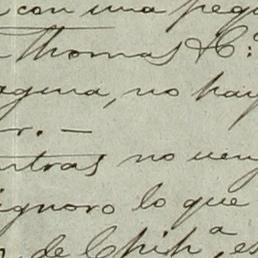 con una pequ
Thomas & Cº
agina, no hay
r. —
ntras no veng
ignoro lo que
de Chihª, es